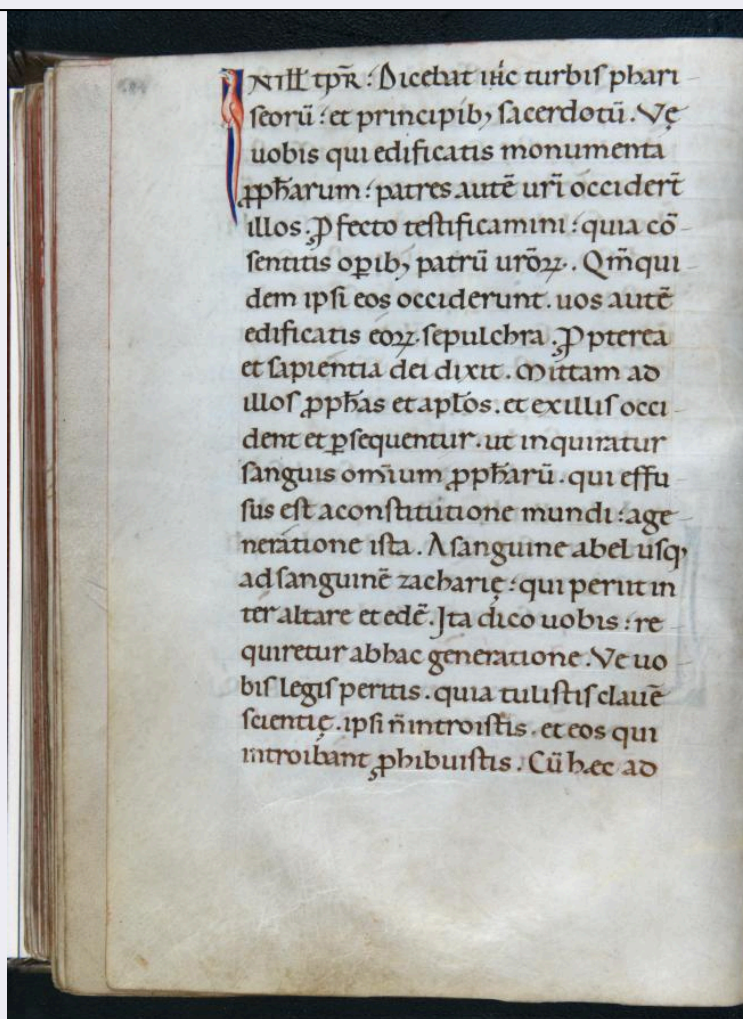 IN ILL̅ TP̅R̅ : Dicebat ih̅c turbis phari
seorū : et principib; sacerdotū . Vę
uobis qui edificatis monumenta
ꝓph̅arum : patres autē ur̅i occidert̅
illos . Ꝓfecto testificamini : quia cō
sentitis oꝑib; patrū urōꝝ . Qm̅qui
dem ipsi eos occiderunt . uos autē
edificatis eoꝝ sepulchra . Ꝓpterea
et sapientia dei dixit . Mittam ad
illos ꝓph̅as et apłos . et exillis occi
dent et ꝑsequentur . ut inquiratur
sanguis om̅ium ꝓph̅arū . qui effu
sus est aconstitutione mundi : age
neratione ista . A sanguine abel usq;
ad sanguinē zacharię : qui periit in
ter altare et edē . Ita dico uobis : re
quiretur abhac generatione . Ve uo
bis legis peritis . quia tulistis clauē
scientię . ipsi n̅ introistis . et eos qui
introibant ꝓhibuistis . Cū haec ad